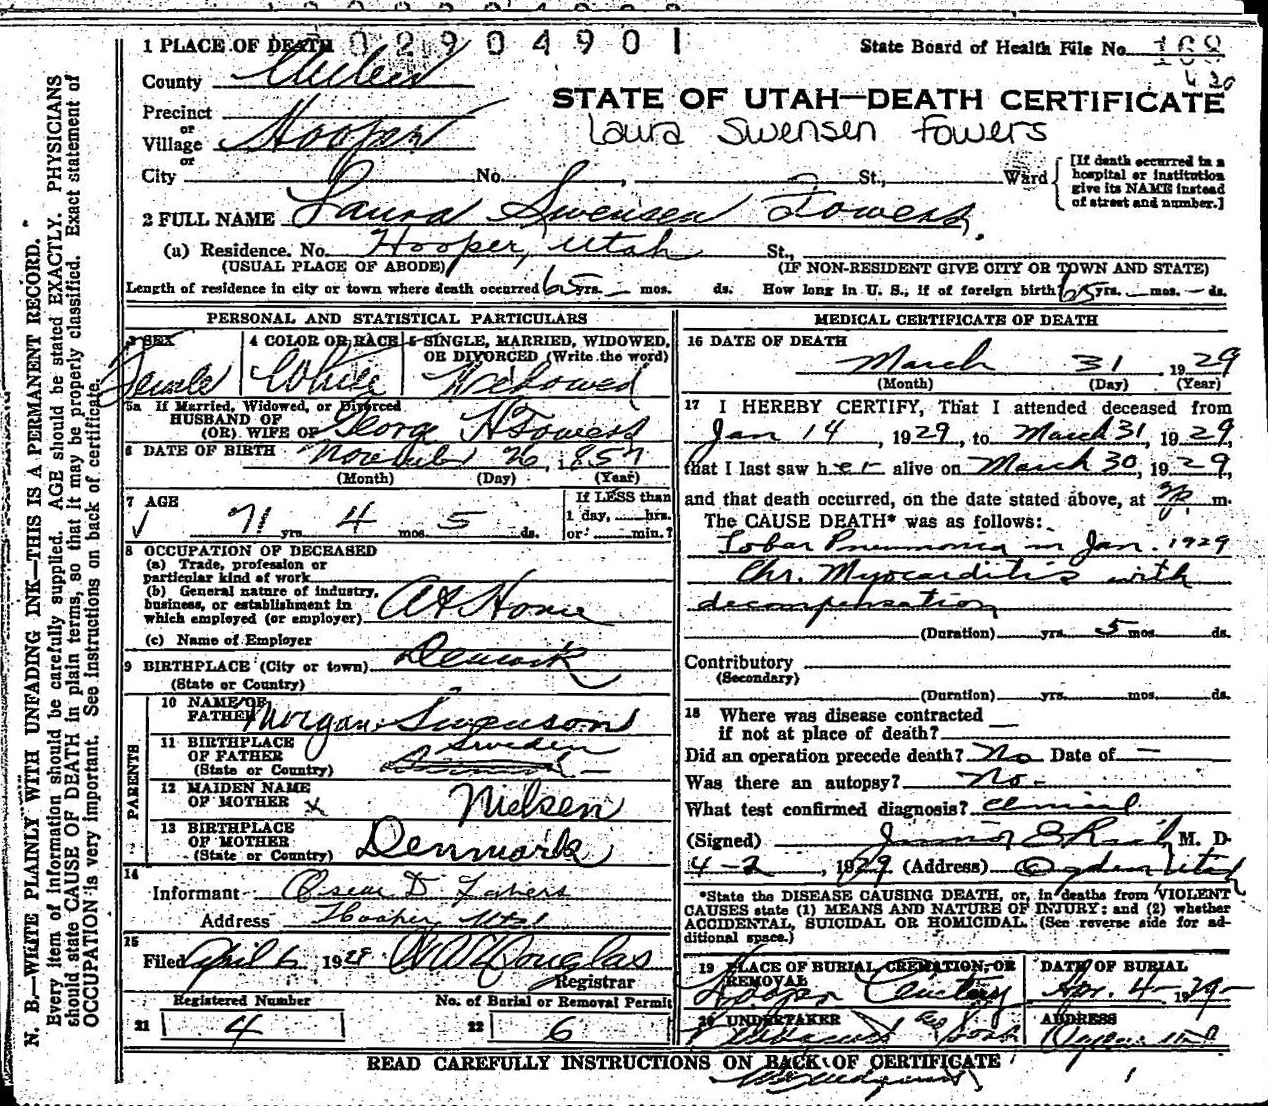 1 PLACE OF DEATH 02904901 State Board of Health File No. 168
County Weber
STATE OF UTAH—DEATH CERTIFICATE
Precinct
or
Village Hooper
or
Laura Swensen Fowers
City No. , St., Ward
[If death occurred in a hospital or institution give its NAME instead of street and number.]
2 FULL NAME Laura Swensen Fowers
(a) Residence. No. Hooper, Utah St.,
(USUAL PLACE OF ABODE) (IF NON-RESIDENT GIVE CITY OR TOWN AND STATE)
Length of residence in city or town where death occurred 65 yrs. — mos. ds. How long in U. S., if of foreign birth 65 yrs. — mos. — ds.
PERSONAL AND STATISTICAL PARTICULARS
3 SEX Female
4 COLOR OR RACE White
5 SINGLE, MARRIED, WIDOWED, OR DIVORCED (Write the word) Widowed
5a If Married, Widowed, or Divorced
HUSBAND OF
(OR) WIFE OF George H Fowers
6 DATE OF BIRTH November 26, 1857
(Month) (Day) (Year)
7 AGE
71 yrs. 4 mos. 5 ds.
If LESS than
1 day, hrs.
or min.?
8 OCCUPATION OF DECEASED
(a) Trade, profession or
particular kind of work
(b) General nature of industry,
business, or establishment in
which employed (or employer) At Home
(c) Name of Employer
9 BIRTHPLACE (City or town) Denmark
(State or Country)
PARENTS
10 NAME OF
FATHER Morgan Swenson
11 BIRTHPLACE
OF FATHER Sweden
(State or Country)
12 MAIDEN NAME
OF MOTHER x Nielsen
13 BIRTHPLACE
OF MOTHER
(State or Country) Denmark
14
Informant Oscar D. Fowers
Address Hooper, Utah
15
Filed April 6 1929
Douglas
Registrar
Registered Number No. of Burial or Removal Permit
21 4 22 6
MEDICAL CERTIFICATE OF DEATH
16 DATE OF DEATH
March 31 1929
(Month) (Day) (Year)
17 I HEREBY CERTIFY, That I attended deceased from
Jan 14, 1929, to March 31, 1929,
that I last saw her alive on March 30, 1929,
and that death occurred, on the date stated above, at m.
The CAUSE DEATH* was as follows:
Lobar Pneumonia in Jan. 1929
Chr. Myocarditis with
decompensation
(Duration) yrs. 5 mos. ds.
Contributory
(Secondary)
(Duration) yrs. mos. ds.
18 Where was disease contracted
if not at place of death?
Did an operation precede death? No Date of —
Was there an autopsy? No -
What test confirmed diagnosis? Clinical
(Signed) Junior E Rich M. D.
4-2, 1929 (Address) Ogden Utah
*State the DISEASE CAUSING DEATH, or, in deaths from VIOLENT
CAUSES state (1) MEANS AND NATURE OF INJURY; and (2) whether
ACCIDENTAL, SUICIDAL OR HOMICIDAL. (See reverse side for ad-
ditional space.)
19 PLACE OF BURIAL, CREMATION, OR
REMOVAL
Hooper Cemetery
DATE OF BURIAL
Apr. 4- 1929-
20 UNDERTAKER
ADDRESS
Ogden Utah
READ CAREFULLY INSTRUCTIONS ON BACK OF CERTIFICATE
N. B.—WRITE PLAINLY WITH UNFADING INK—THIS IS A PERMANENT RECORD.
Every item of information should be carefully supplied. AGE should be stated EXACTLY. PHYSICIANS
should state CAUSE OF DEATH in plain terms, so that it may be properly classified. Exact statement of
OCCUPATION is very important. See instructions on back of certificate.